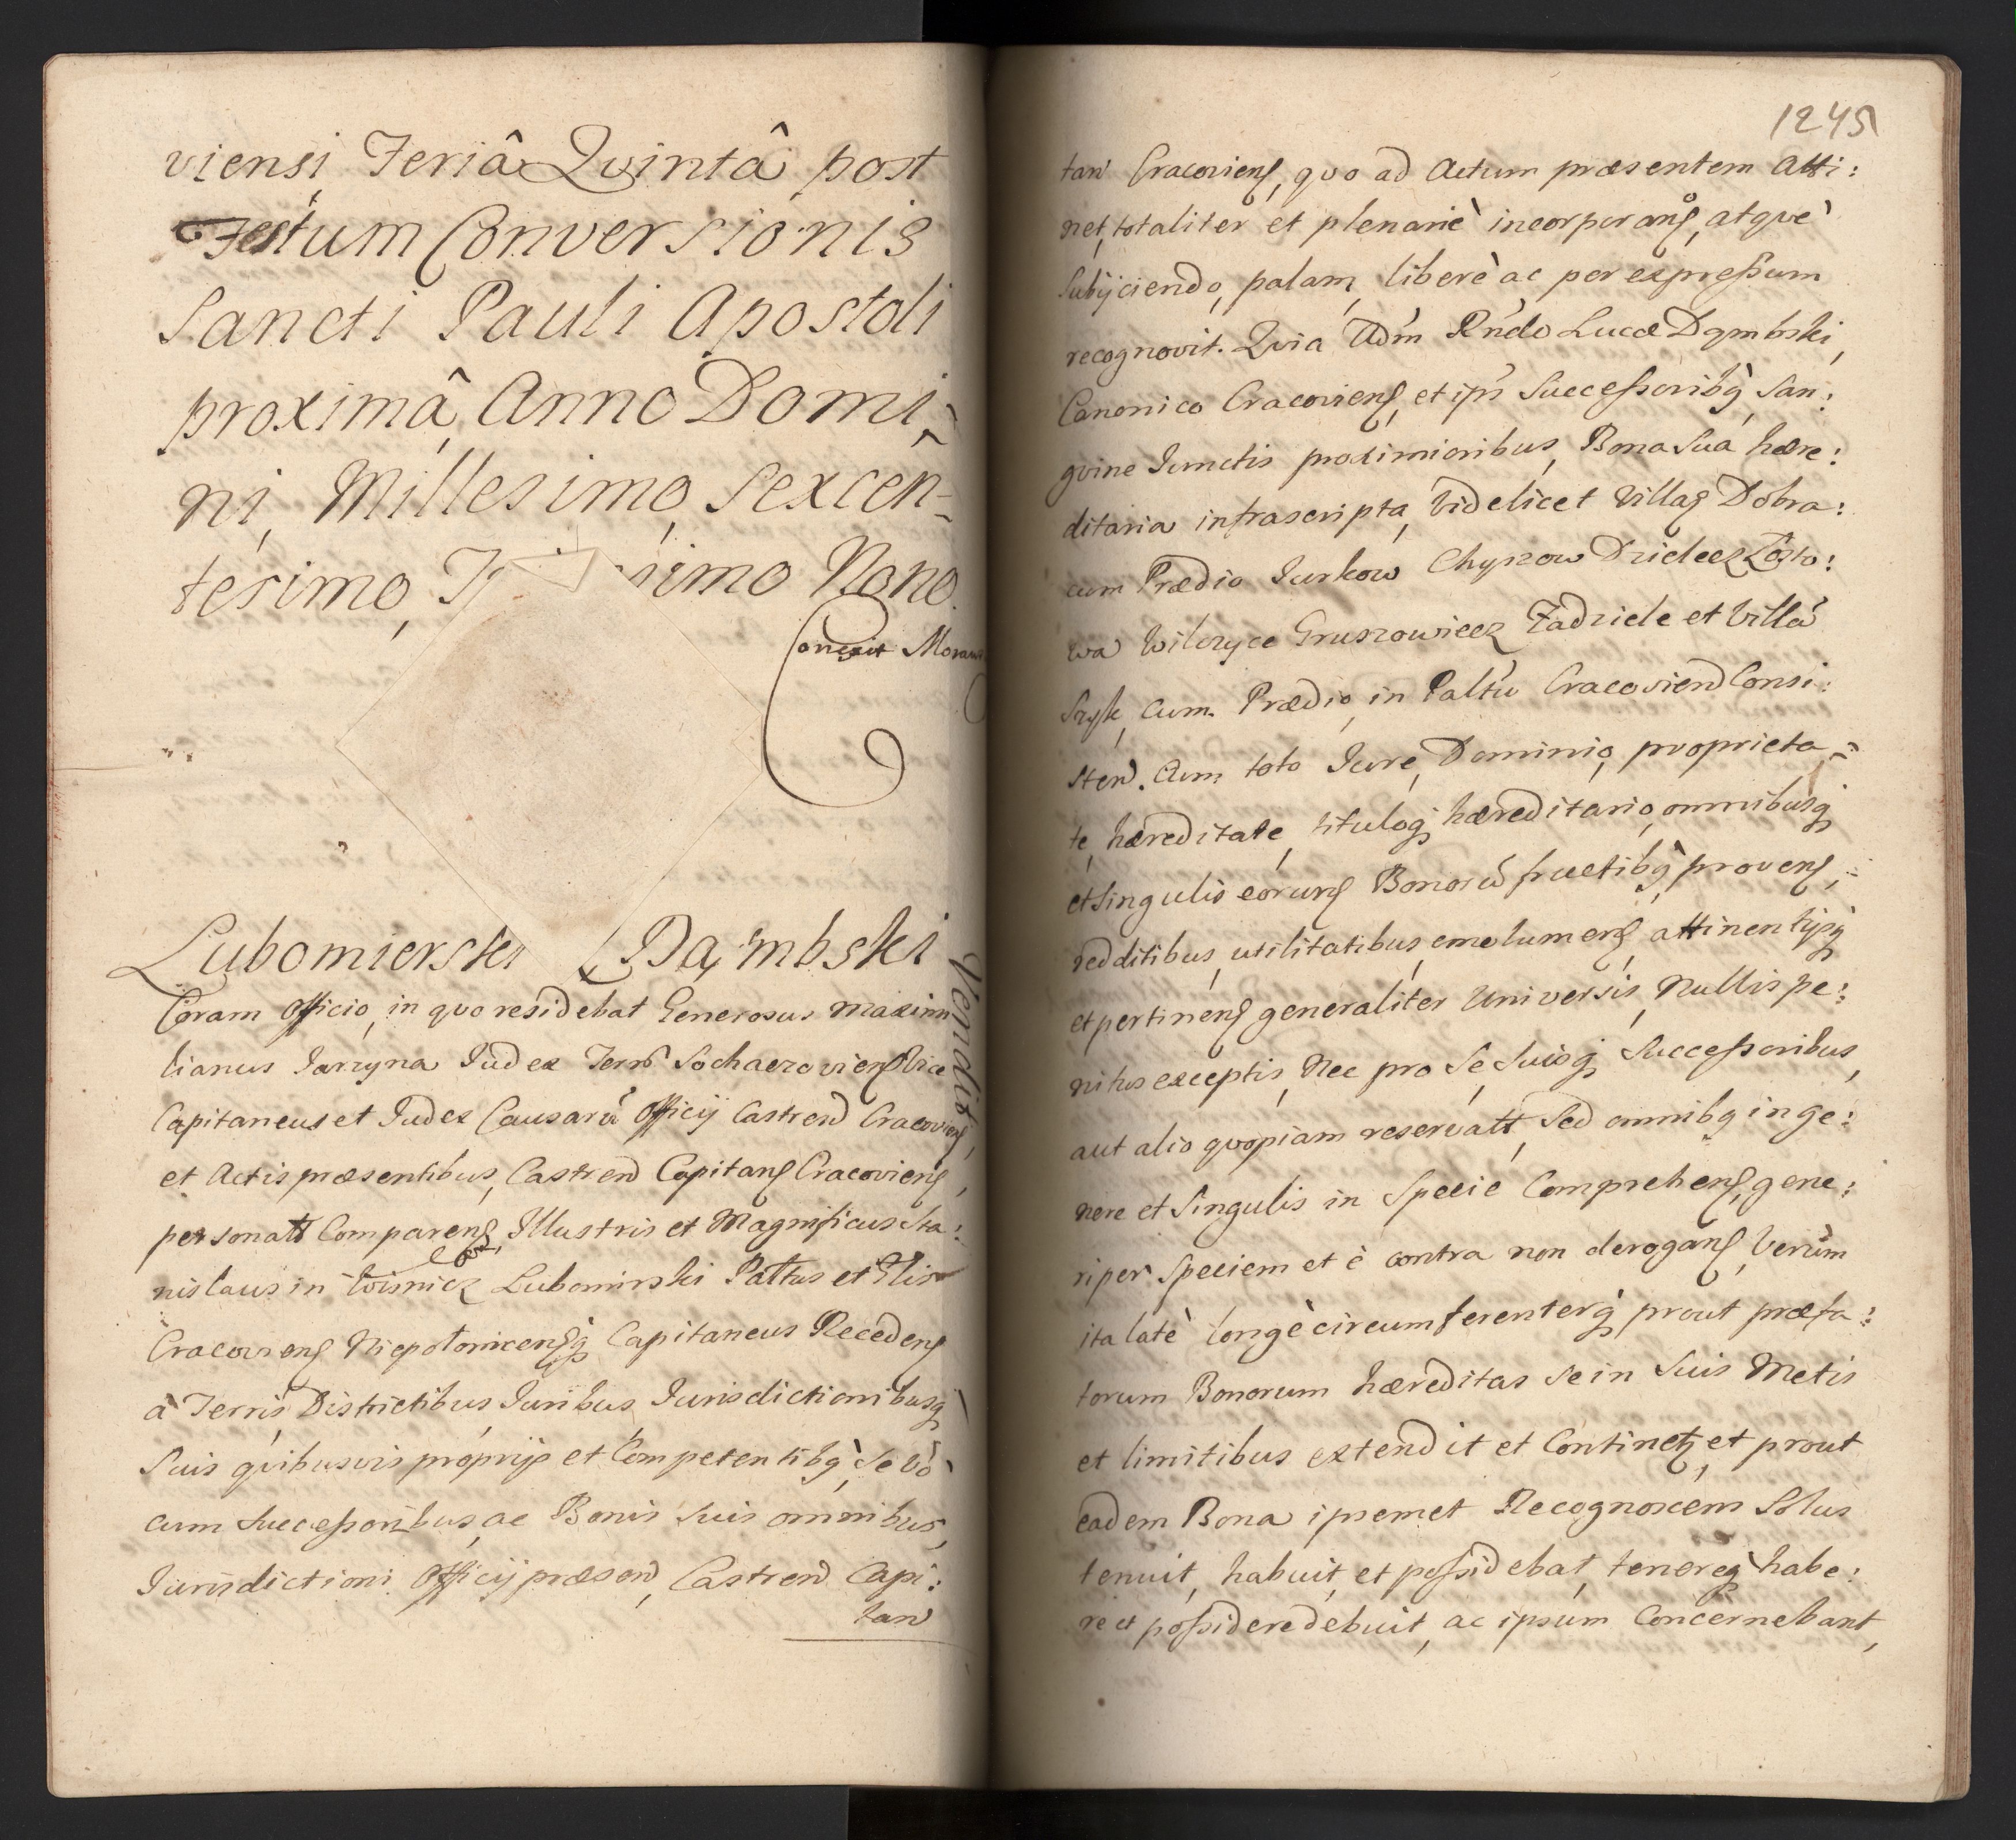 viensi, Feriâ Qvintâ post
Festum Conversionis
Sancti Pauli Apostoli
proximâ, Anno Domi-
ni, Millesimo, Sexcen-
tesimo, T simo Nono.
Correxit Moraw
Lubomierski Dąmbski
Vendit
Coram Officio, in qvo residebat Generosus Maximi
lianus Jarzyna Judex Terrs Sochaczoviens Vice
Capitaneus et Judex Causarū Officij Castren Cracoviens,
et Actis præsentibus, Castren Capitans Cracoviens,
personalt Comparens, Illustris et Magnificus Sta:
Com
nislaus in Wisnicz Lubomirski Paltus et Glis
Cracoviens Niepolomicensq Capitaneus Recedens
à Terris Districtibus Juribus Jurisdictionibusq
Suis qvibusvis proprijs et Competentibq, Se vò
cum Successoribus, ac Bonis Suis omnibus,
Jurisdictioni Officij præsen, Castren Capi:
tan
1245
tan Cracoviens, qvo ad Actum præsentem Atti:
net, totaliter et plenariè incorporans, atqvè
Subijciendo, palam, liberè ac per expressum
recognovit. Qvia Adm Rndo Lucæ Dąmbski,
Canonico Cracoviens, et ips Successoribq, San:
gvine Junctis proximioribus, Bona Sua hære:
ditaria infrascripta, Videlicet Villas Dobra:
cum Prædio Jurkow Chyszow Dzielecz Łosto:
wa Wilczyce Gruszowiecz Zadziele et Villā
Szyk, cum Prædio, in Paltu Cracovien Consi:
sten. Cum toto Jure, Dominio, proprieta-
te, hæreditate, tituloq hæreditario, omnibusq
et Singulis eorums Bonorū fructibq, provens,
redditibus, utilitatibus, emolumens, attinentijsq
et pertinens generaliter Universis, Nullis pe:
nitus exceptis, Nec pro Se, Suisq Successoribus,
aut alio qvopiam reservatt, Sed omnibq in ge:
nere et Singulis in Specie Comprehens, gene:
ri per Speciem et è contra non derogans, Verùm
ita latè longè circumferenterq prout præfa:
torum Bonorum hæreditas Se in Suis Metis
et limitibus extendit et Continetz, et prout
eadem Bona ipsemet Recognoscens Solus
tenuit, habuit, et possidebat, tenereq habe:
re et possidere debuit, ac ipsum Concernebant,